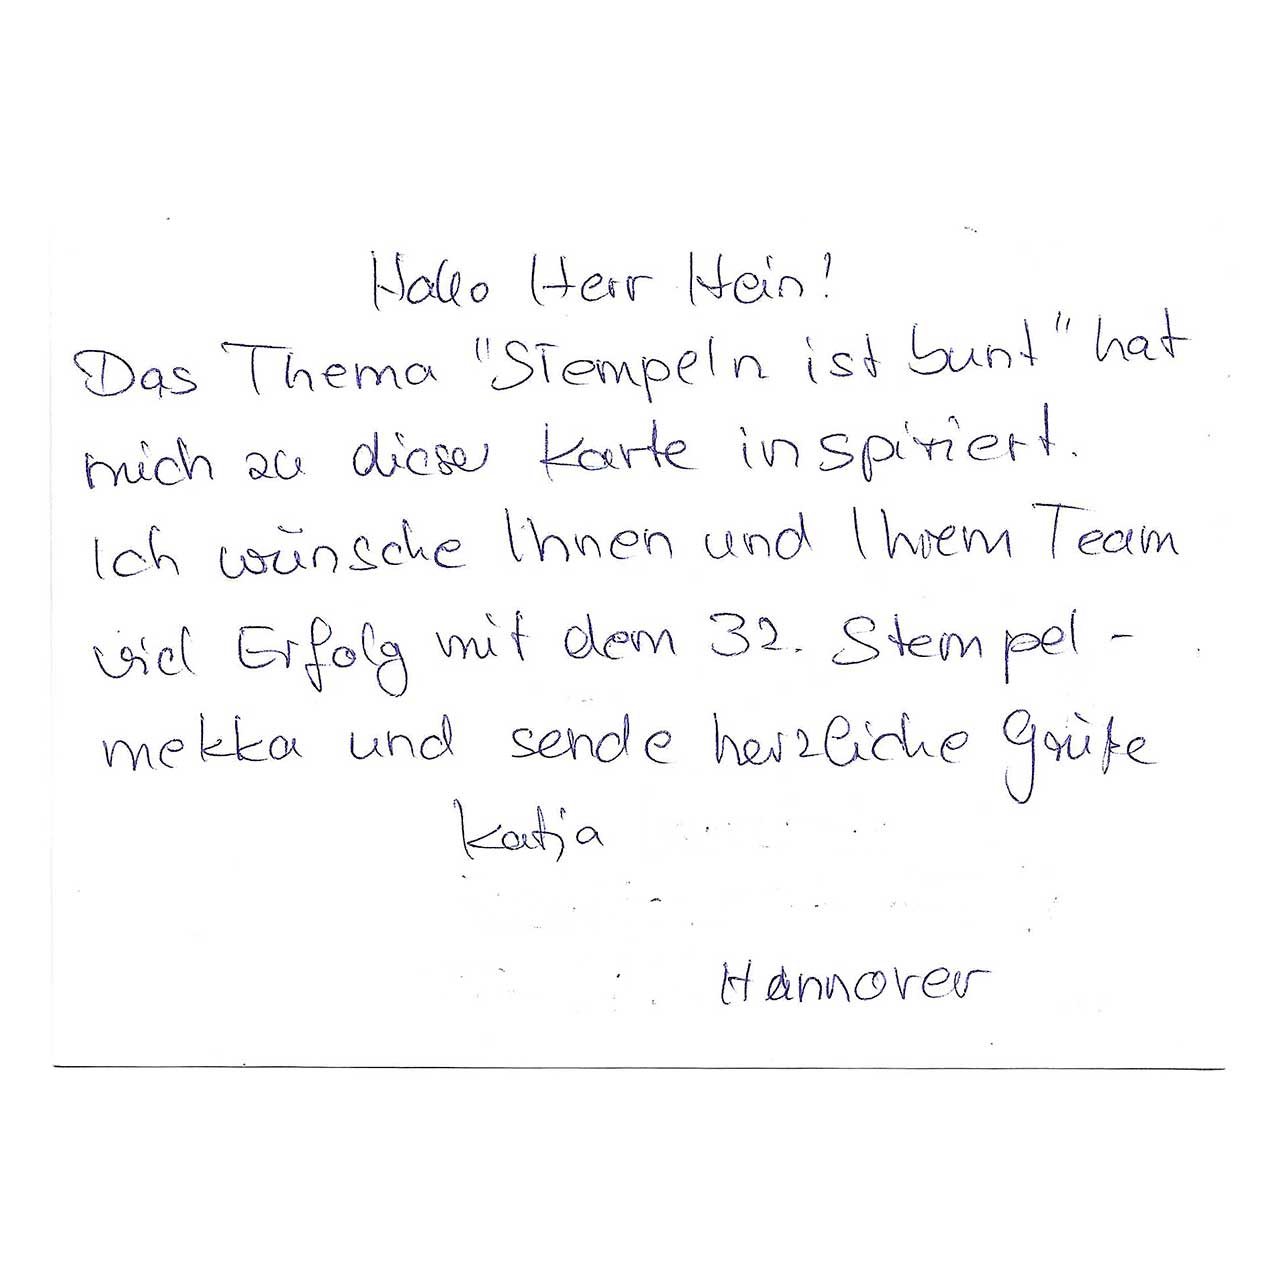 Hallo Herr Hein!
Das Thema "Stempeln ist bunt" hat
mich zu dieser Karte inspiriert.
Ich wünsche Ihnen und Ihrem Team
viel Erfolg mit dem 32. Stempel-
mekka und sende herzliche Grüße
Katja
Hannover